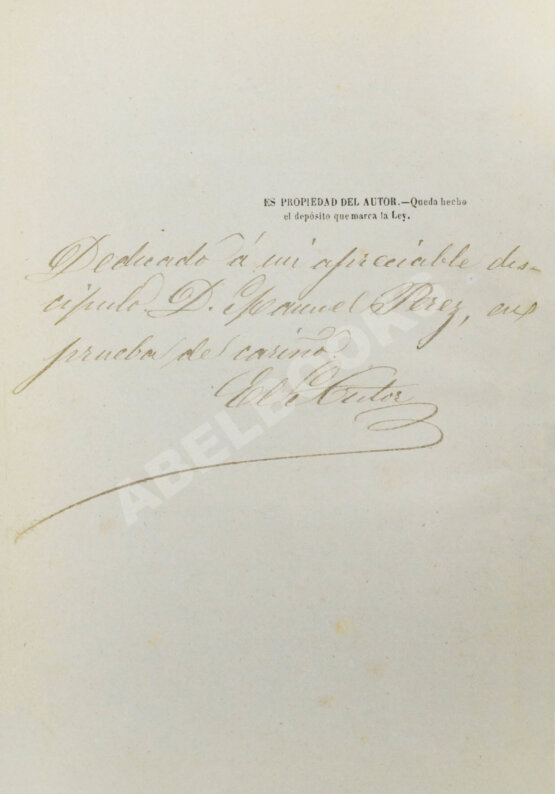 ES PROPIEDAD DEL AUTOR.—Queda hecho
el depósito que marca la Ley.
Dedicado á mi apreciable dis-
cípulo D. Manuel Pérez, en
prueba de cariño.
El Autor
ABELBOOKS